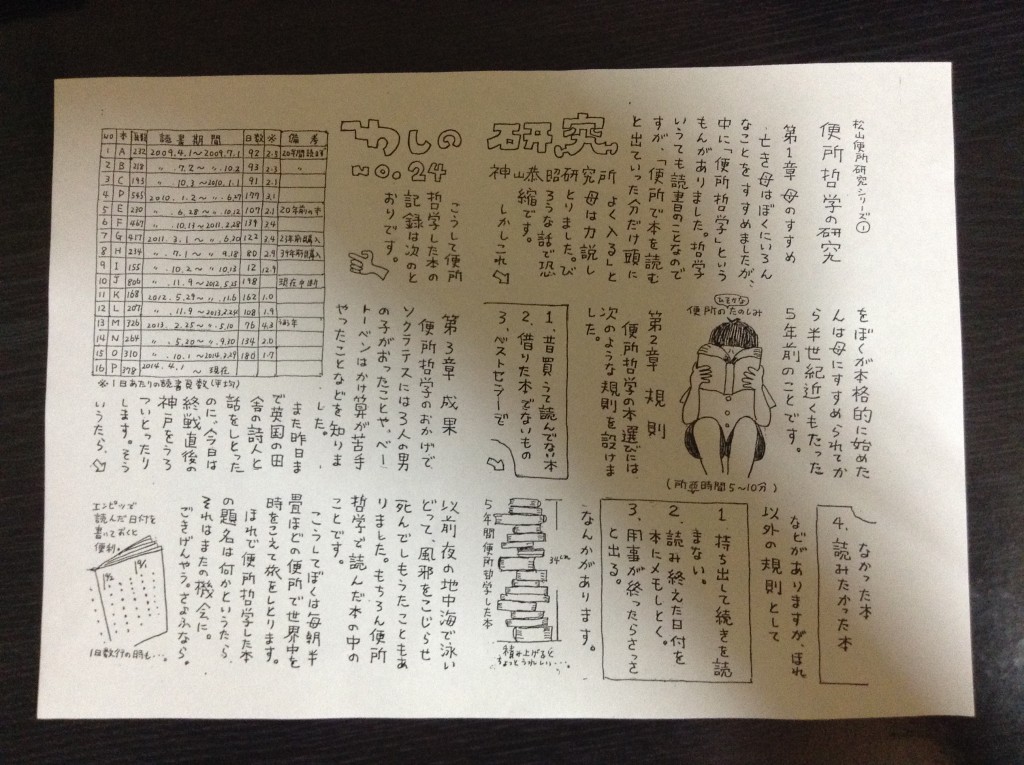 松山便所研究シリーズ①
便所哲学の研究
第1章 母のすすめ
亡き母はぼくにいろん
なことをすすめましたが、
中に「便所哲学」という
もんがありました。哲学
いうても読書のことなので
すが、「便所で本を読む
と出ていった分だけ頭に
よく入ると
母は力説し
とりました。び
ろうな話で恐
縮です。
しかしこれ
わしの研究
no.24
神山恭昭研究所
をぼくが本格的に始めた
んは母にすすめられてか
ら半世紀近くもたった
5年前のことです。
ひそかな
便所のたのしみ
(所要時間5〜10分)
第2章 規則
便所哲学の本選びには
次のような規則を設けま
した。
1、昔買うて読んでない本
2、借りた本でないもの
3、ベストセラーで
なかった本
4、読みたかった本
などがありますが、ほれ
以外の規則として
1、持ち出して続きを読
まない。
2、読み終えた日付を
本にメモしとく。
3、用事が終ったらさっさ
と出る。
なんかがあります。
5年間便所哲学した本
34cm
積み上げると
ちょっとうれしい…。
こうして便所
哲学した本の
記録は次のと
おりです。
no 本 頁数 読書期間 日数 % 備考
1 A 232 2009.4.1〜2009.7.1 92 2.3 20年間読まず
2 B 218 〃.7.2〜〃.10.2 93 2.3 〃
3 C 193 〃.10.3〜2010.1.1 91 2.1
4 D 545 2010.1.2〜〃.6.27 177 3.1
5 E 230 〃.6.28〜〃.10.12 107 2.1 20年前の本
6 F 467 〃.10.13〜2011.2.28 139 3.4
7 G 417 2011.3.1〜〃.6.30 122 3.4 23年前購入
8 H 234 〃.7.1〜〃.9.18 80 2.9 39年前購入
9 I 155 〃.10.2〜〃.10.13 12 12.9
10 J 806 〃.11.9〜2012.5.25 198 現在中断
11 K 168 2012.5.29〜〃.11.6 162 1.0
12 L 207 〃.11.9〜2013.2.24 108 1.9
13 M 326 2013.2.25〜〃.5.10 76 4.3
14 N 264 〃.5.20〜〃.9.30 134 2.0
15 O 310 〃.10.1〜2014.3.29 180 1.7
16 P 398 2014.4.1〜現在
※1日あたりの読書頁数(平均)
第3章 成果
便所哲学のおかげで
ソクラテスには3人の男
の子がおったことや、ベー
トーベンはかけ算が苦手
やったことなどを知りま
した。
また昨日ま
で英国の田
舎の詩人と
話をしとった
のに、今日は
終戦直後の
神戸をうろ
ついとったり
します。そう
いうたら、
以前、夜の地中海で泳い
どって、風邪をこじらせ
死んでしもうたこともあ
りました。もちろん便所
哲学で読んだ本の中の
ことです。
こうしてぼくは毎朝半
畳ほどの便所で世界中を
時をこえて旅をしとります。
ほれで便所哲学した本
の題名は何かというたら、
それはまたの機会に。
ごきげんやう。さよふなら。
エンピツで
読んだ日付を
書いておくと
便利。
1日数行の時も…。